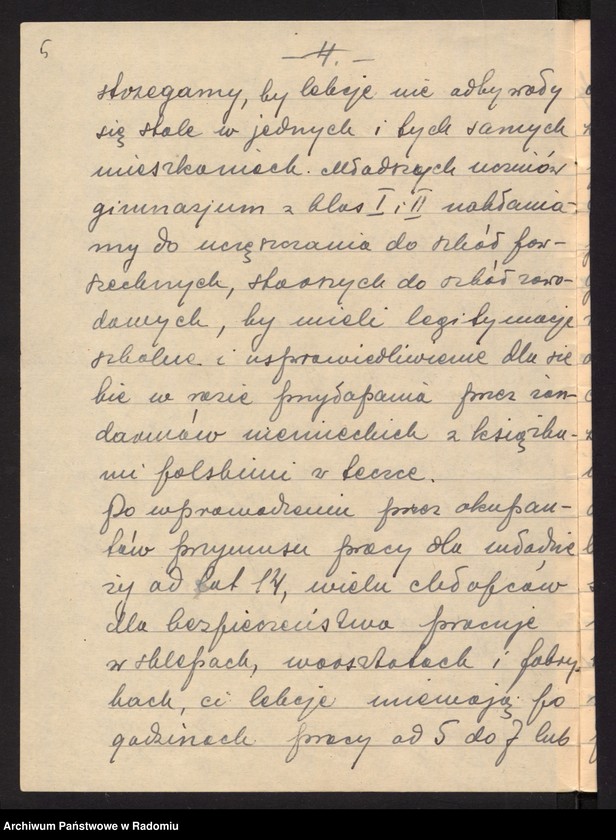 5
- 4. -
strzegamy, by lekcje nie odbywały
się stale w jednych i tych samych
mieszkaniach. Młodszych uczniów
gimnazjum z klas I i II nakłania-
my do uczęszczania do szkół pow-
szechnych, starszych do szkół zawo-
dowych, by mieli legitymacje
szkolne i usprawiedliwienie dla sie
bie w razie przyłapania przez żan-
darmów niemieckich z książka-
mi polskimi w teczce.
Po wprowadzeniu przez okupan-
tów przymusu pracy dla młodzie
ży od lat 14, wielu chłopców
dla bezpieczeństwa pracuje
w sklepach, warsztatach i fabry-
kach, ci lekcje miewają po
godzinach pracy od 5 do 7 lub
Archiwum Państwowe w Radomiu